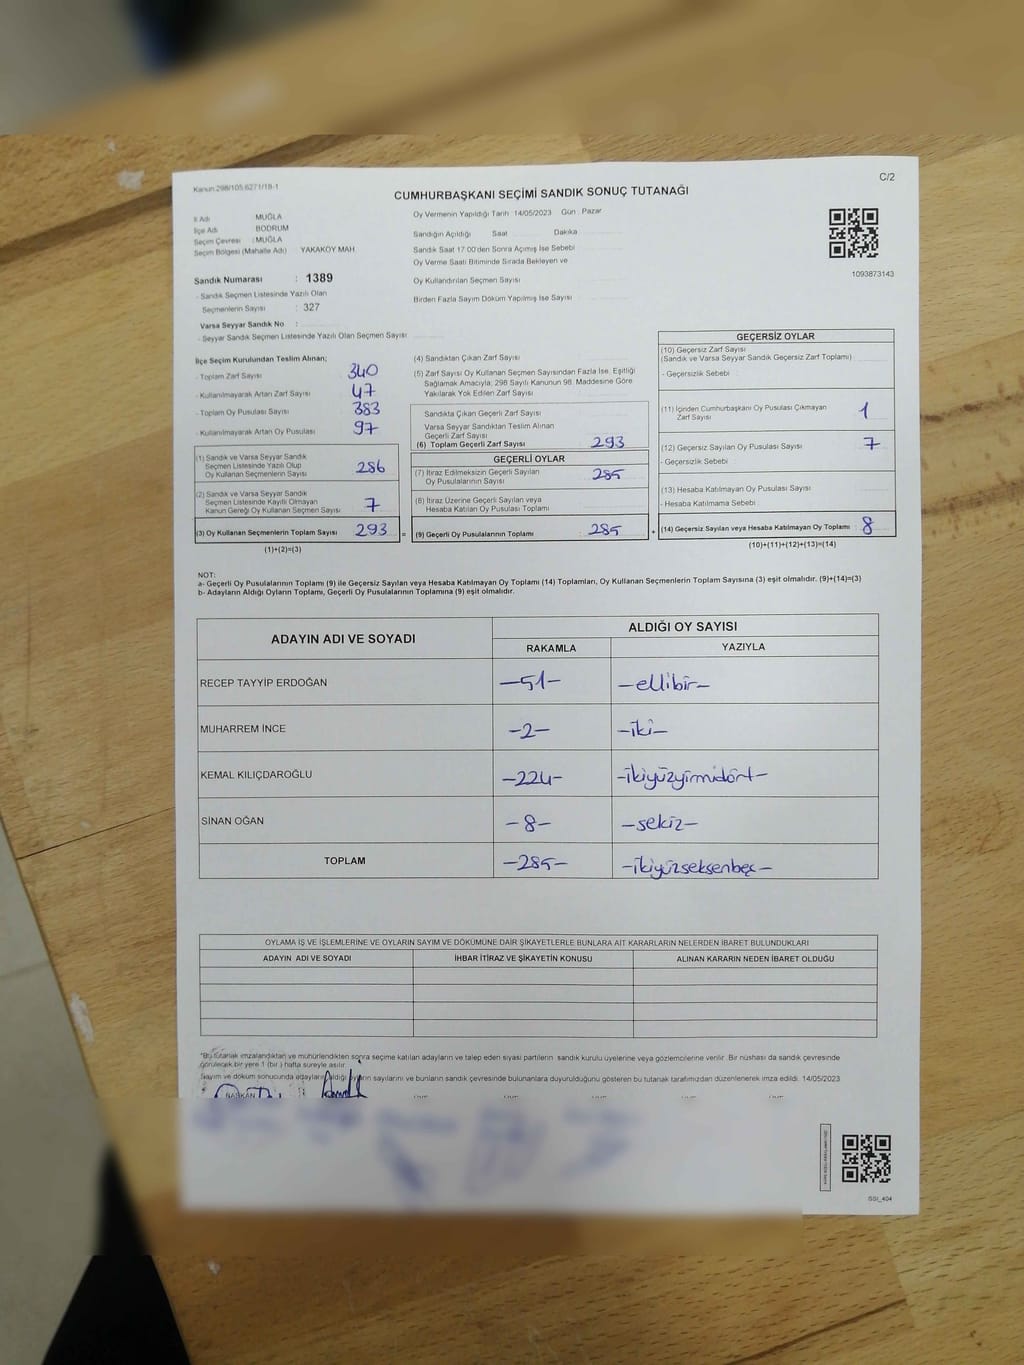 Kanun 298/105 6271/18-1
C/2
CUMHURBAŞKANI SEÇİMİ SANDIK SONUÇ TUTANAĞI
İl Adı MUĞLA
İlçe Adı BODRUM
Seçim Çevresi : MUĞLA
Seçim Bölgesi (Mahalle Adı) YAKAKÖY MAH.
Sandık Numarası : 1389
- Sandık Seçmen Listesinde Yazılı Olan
Seçmenlerin Sayısı : 327
Varsa Seyyar Sandık No :
- Seyyar Sandık Seçmen Listesinde Yazılı Olan Seçmen Sayısı
Oy Vermenin Yapıldığı Tarih 14/05/2023 Gün : Pazar
Sandığın Açıldığı Saat Dakika
Sandık Saat 17:00'den Sonra Açımış İse Sebebi
Oy Verme Saati Bitiminde Sırada Bekleyen ve
Oy Kullandırılan Seçmen Sayısı
Birden Fazla Sayım Döküm Yapılmış İse Sayısı
1093873143
İlçe Seçim Kurulundan Teslim Alınan;
- Toplam Zarf Sayısı 340
- Kullanılmayarak Artan Zarf Sayısı 47
- Toplam Oy Pusulası Sayısı 383
- Kullanılmayarak Artan Oy Pusulası 97
(1) Sandık ve Varsa Seyyar Sandık
Seçmen Listesinde Yazılı Olup
Oy Kullanan Seçmenlerin Sayısı 286
(2) Sandık ve Varsa Seyyar Sandık
Seçmen Listesinde Kayıtlı Olmayan
Kanun Gereği Oy Kullanan Seçmen Sayısı 7
(3) Oy Kullanan Seçmenlerin Toplam Sayısı 293 =
(1)+(2)=(3)
(4) Sandıktan Çıkan Zarf Sayısı
(5) Zarf Sayısı Oy Kullanan Seçmen Sayısından Fazla İse, Eşitliği
Sağlamak Amacıyla; 298 Sayılı Kanunun 98. Maddesine Göre
Yakılarak Yok Edilen Zarf Sayısı
Sandıkta Çıkan Geçerli Zarf Sayısı
Varsa Seyyar Sandıktan Teslim Alınan
Geçerli Zarf Sayısı
(6) Toplam Geçerli Zarf Sayısı 293
GEÇERLİ OYLAR
(7) İtiraz Edilmeksizin Geçerli Sayılan
Oy Pusulalarının Sayısı 285
(8) İtiraz Üzerine Geçerli Sayılan veya
Hesaba Katılan Oy Pusulası Toplamı
(9) Geçerli Oy Pusulalarının Toplamı 285 +
GEÇERSİZ OYLAR
(10) Geçersiz Zarf Sayısı
(Sandık ve Varsa Seyyar Sandık Geçersiz Zarf Toplamı)
- Geçersizlik Sebebi
(11) İçinden Cumhurbaşkanı Oy Pusulası Çıkmayan
Zarf Sayısı 1
(12) Geçersiz Sayılan Oy Pusulası Sayısı 7
- Geçersizlik Sebebi
(13) Hesaba Katılmayan Oy Pusulası Sayısı
- Hesaba Katılmama Sebebi
(14) Geçersiz Sayılan veya Hesaba Katılmayan Oy Toplamı : 8
(10)+(11)+(12)+(13)=(14)
NOT:
a- Geçerli Oy Pusulalarının Toplamı (9) ile Geçersiz Sayılan veya Hesaba Katılmayan Oy Toplamı (14) Toplamları, Oy Kullanan Seçmenlerin Toplam Sayısına (3) eşit olmalıdır. (9)+(14)=(3)
b- Adayların Aldığı Oyların Toplamı, Geçerli Oy Pusulalarının Toplamına (9) eşit olmalıdır.
ADAYIN ADI VE SOYADI
ALDIĞI OY SAYISI
RAKAMLA YAZIYLA
RECEP TAYYİP ERDOĞAN -51- -ellibir-
MUHARREM İNCE -2- -iki-
KEMAL KILIÇDAROĞLU -224- -ikiyüzyirmidört-
SİNAN OĞAN -8- -sekiz-
TOPLAM -285- -ikiyüzseksenbeş-
OYLAMA İŞ VE İŞLEMLERİNE VE OYLARIN SAYIM VE DÖKÜMÜNE DAİR ŞİKAYETLERLE BUNLARA AİT KARARLARIN NELERDEN İBARET BULUNDUKLARI
ADAYIN ADI VE SOYADI İHBAR İTİRAZ VE ŞİKAYETİN KONUSU ALINAN KARARIN NEDEN İBARET OLDUĞU
*Bu tutanak imzalandıktan ve mühürlendikten sonra seçime katılan adayların ve talep eden siyasi partilerin sandık kurulu üyelerine veya gözlemcilerine verilir. Bir nüshası da sandık çevresinde
görülecek bir yere 1 (bir ) hafta süreyle asılır.
Sayım ve döküm sonucunda adayların aldığı oyların sayılarını ve bunların sandık çevresinde bulunanlara duyurulduğunu gösteren bu tutanak tarafımızdan düzenlenerek imza edildi. 14/05/2023
BAŞKAN
SSI_404